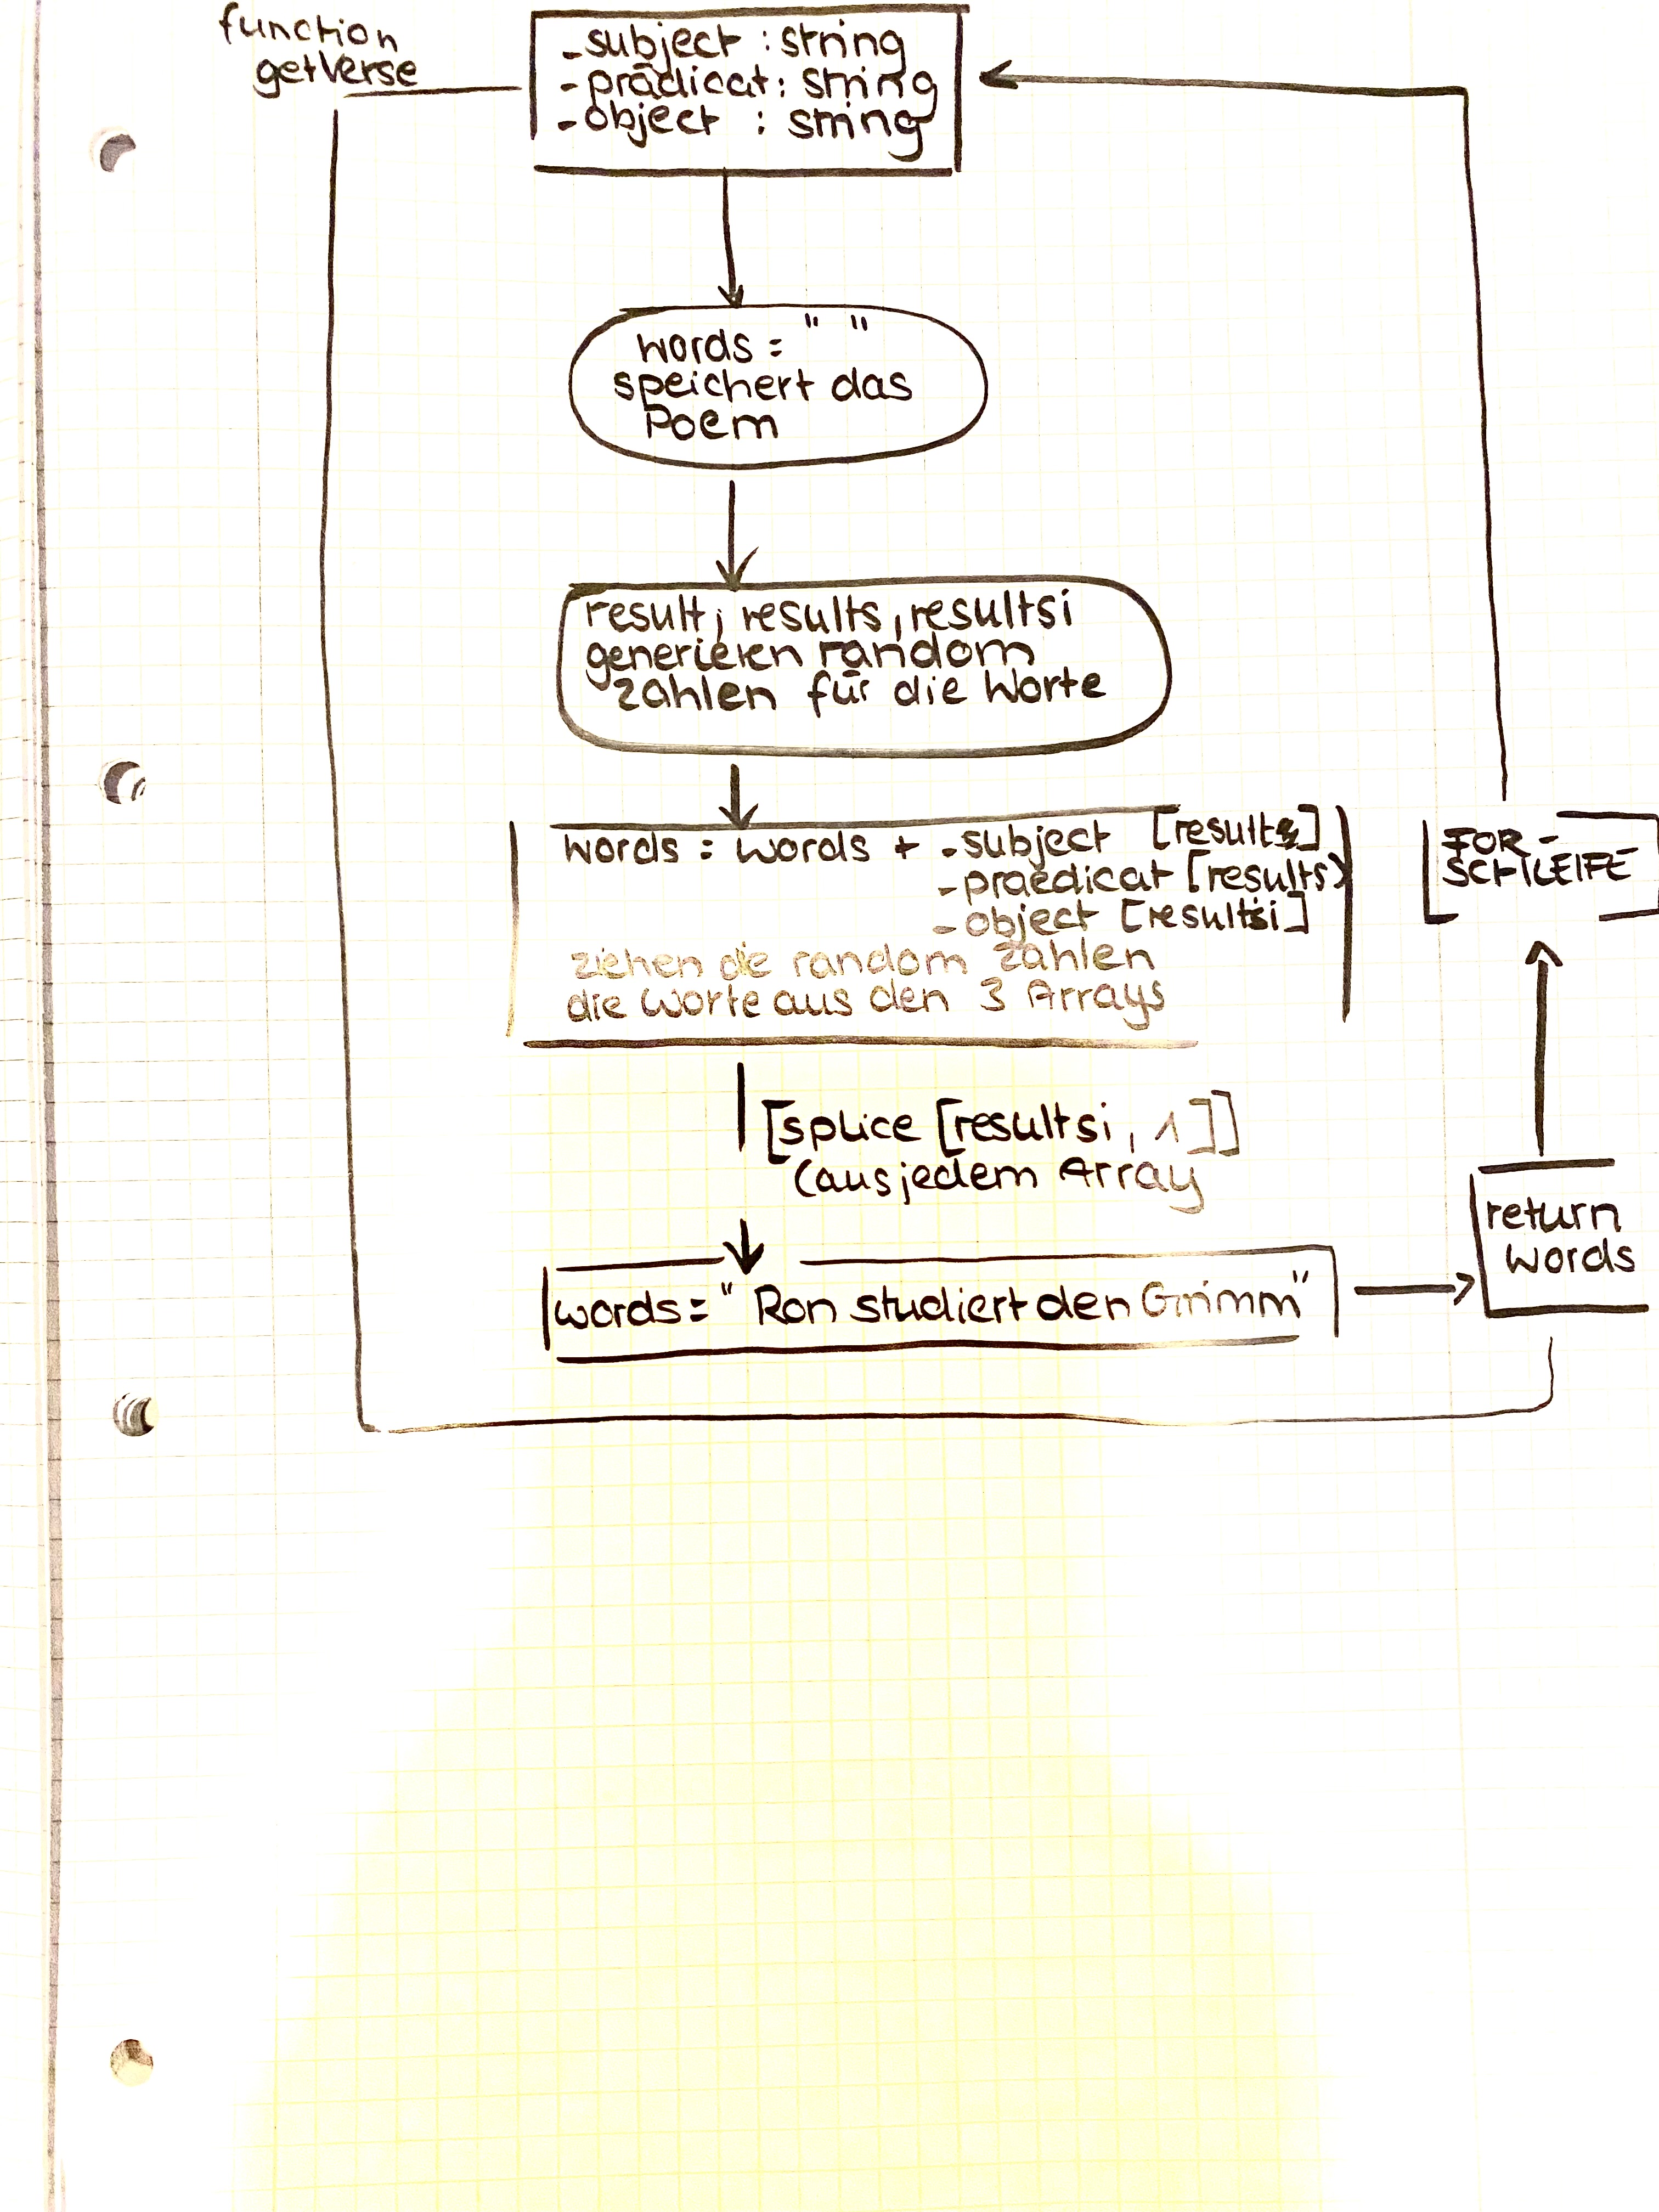 function
getVerse
_subject : string
_prädicat : string
_object : string
words = " "
speichert das
Poem
result, results, resultsi
generieren random
zahlen für die Worte
words = words + _subject
_praedicat [results)
_object [resultsi]
ziehen die random zahlen
die Worte aus den 3 Arrays
[splice [resultsi, 1]]
(aus jedem Array
words = " Ron studiert den Grimm"
return
words
FOR-
SCHLEIFE